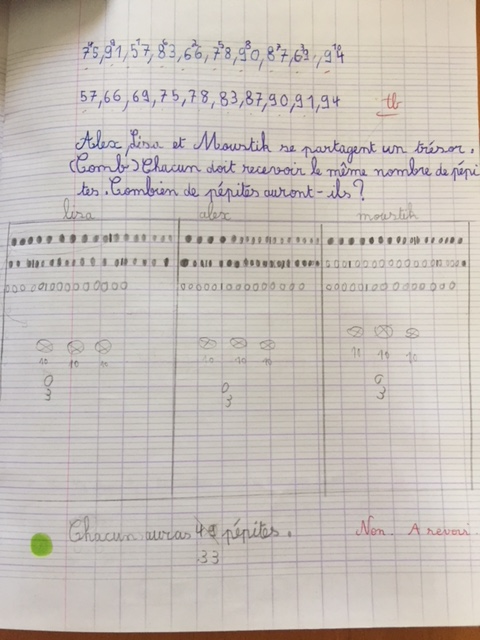 75, 91, 57, 83, 66, 78, 90, 87, 69, 94
57, 66, 69, 75, 78, 83, 87, 90, 91, 94
tb
Alex, Lisa et Moustik se partagent un trésor.
(Comb) Chacun doit recevoir le même nombre de pépi
tes. Combien de pépites auront-ils ?
lisa alex moustik
10 10 10 10 10 10 10 10 10
3 3 3
Chacun auras pépites.
33
Non. A revoir.